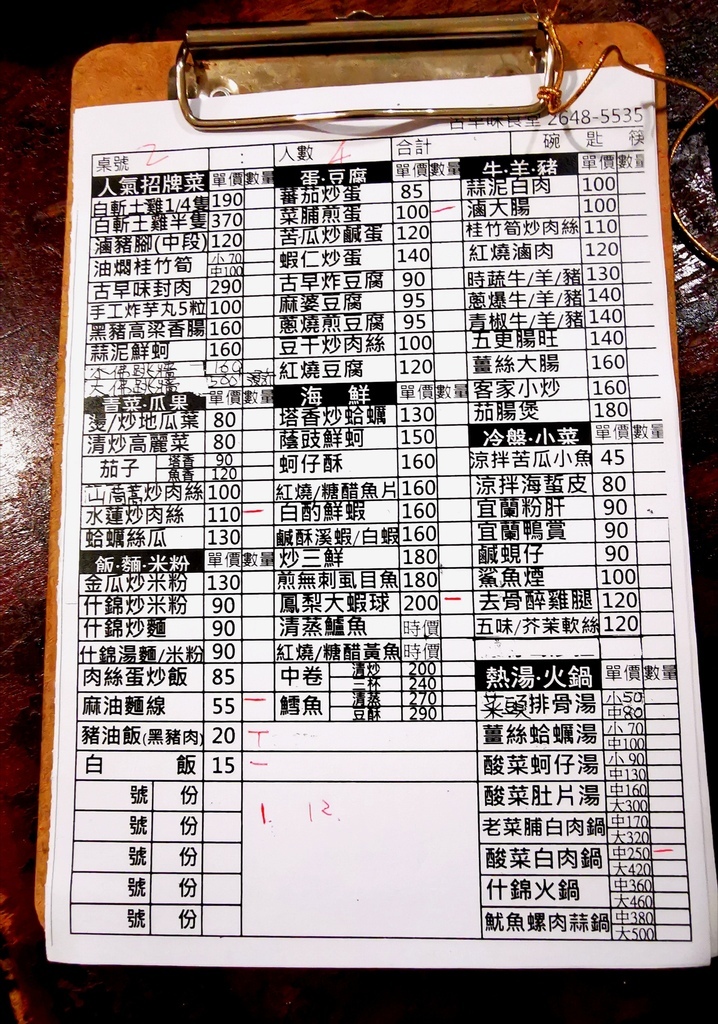 古早味食堂 2648-5535
桌號 2 : 人數 4 合計 碗 匙 筷
人氣招牌菜 單價 數量
白斬土雞1/4隻 190
白斬土雞半隻 370
滷豬腳(中段) 120
油燜桂竹筍 小70 中100
古早味封肉 290
手工炸芋丸5粒 100
黑豬高粱香腸 160
蒜泥鮮蚵 160
小佛跳牆 160
大佛跳牆 500
青菜·瓜果 單價 數量
燙/炒地瓜葉 80
清炒高麗菜 80
茄子 塔香 90
魚香 120
山萵苣炒肉絲 100
水蓮炒肉絲 110 一
蛤蠣絲瓜 130
飯·麵·米粉 單價 數量
金瓜炒米粉 130
什錦炒米粉 90
什錦炒麵 90
什錦湯麵/米粉 90
肉絲蛋炒飯 85
麻油麵線 55 一
豬油飯(黑豬肉) 20 T
白飯 15 一
號 份
號 份
號 份
號 份
號 份
蛋·豆腐 單價 數量
蕃茄炒蛋 85
菜脯煎蛋 100 一
苦瓜炒鹹蛋 120
蝦仁炒蛋 140
古早炸豆腐 90
麻婆豆腐 95
蔥燒煎豆腐 95
豆干炒肉絲 100
紅燒豆腐 120
海鮮 單價 數量
塔香炒蛤蠣 130
蔭豉鮮蚵 150
蚵仔酥 160
紅燒/糖醋魚片 160
白酌鮮蝦 160
鹹酥溪蝦/白蝦 160
炒三鮮 180
煎無刺虱目魚 180
鳳梨大蝦球 200 一
清蒸鱸魚 時價
紅燒/糖醋黃魚 時價
中卷 清炒 200
三杯 240
鱈魚 清蒸 270
豆酥 290
1. 12.
牛·羊·豬 單價 數量
蒜泥白肉 100
滷大腸 100
桂竹筍炒肉絲 110
紅燒滷肉 120
時蔬牛/羊/豬 130
蔥爆牛/羊/豬 140
青椒牛/羊/豬 140
五更腸旺 140
薑絲大腸 160
客家小炒 160
茄腸煲 180
冷盤·小菜 單價 數量
涼拌苦瓜小魚 45
涼拌海蜇皮 80
宜蘭粉肝 90
宜蘭鴨賞 90
鹹蜆仔 90
鯊魚煙 100
去骨醉雞腿 120
五味/芥茉軟絲 120
熱湯·火鍋 單價 數量
菜頭排骨湯 小50 中80
薑絲蛤蠣湯 小70 中100
酸菜蚵仔湯 小90 中130
酸菜肚片湯 中160 大300
老菜脯白肉鍋 中170 大320
酸菜白肉鍋 中250 一 大420
什錦火鍋 中360 大460
魷魚螺肉蒜鍋 中380 大500